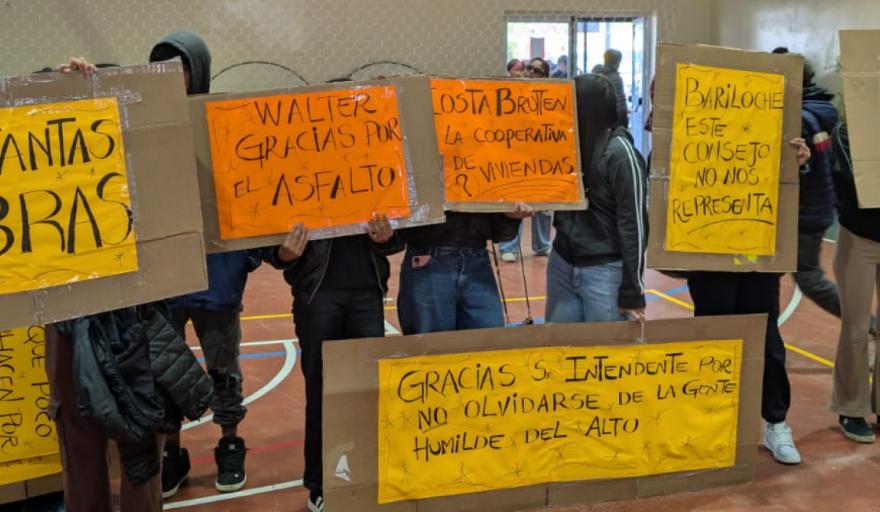 ANTAS
BRAS
QUE POCO
HACEN POR
WALTER
GRACIAS POR
EL ASFALTO
COSTA BRUTEN
LA COOPERATIVA
DE VIVIENDAS
?
BARILOCHE
ESTE
CONSEJO
NO NOS
REPRESENTA
GRACIAS Sr INTENDENTE POR
NO OLVIDARSE DE LA GENTE
HUMILDE DEL ALTO